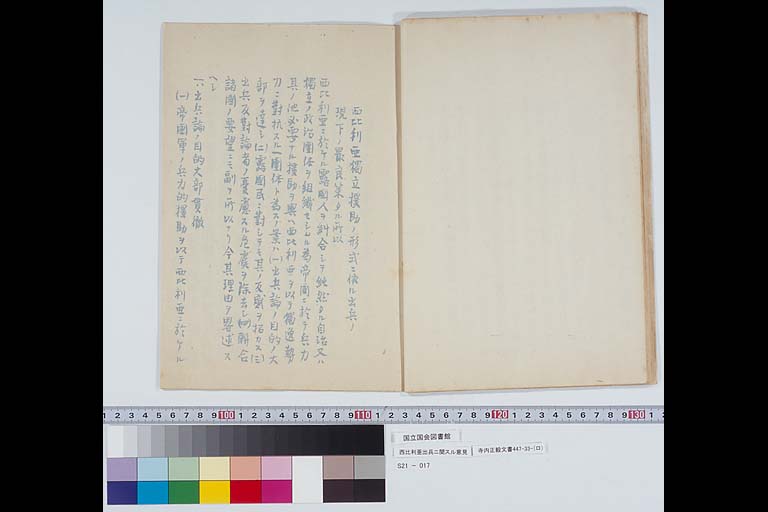 西比利亜獨立援助ノ形式ニ依ル出兵ノ
現下ノ最良策タル所以
西比利亜ニ於ケル露國人ヲ糾合シテ純然タル自治又ハ
獨立ノ政治團体ヲ組織セシムル為帝國ニ於テ兵力
其ノ他必要ナル援助ヲ與ヘ西比利亜ヲ以テ獨逸勢
力ニ對抗スル一團体ト為スノ案ハ(一)出兵論ノ目的ノ大
部ヲ達シ(二)露國民ニ對シテモ其ノ反感ヲ招カス(三)
出兵反對論者ノ憂慮スル危虞ヲ除去シ(四)聯合
諸國ノ要望ニモ副フ所以ナリ今其理由ヲ畧述ス
ヘシ
一、出兵論ノ目的大部貫徹
(一)帝國軍ノ兵力的援助ヲ以テ西比利亜ニ於ケル
国立国会図書館
西比利亜出兵ニ関スル意見
寺内正毅文書447-33-(ロ)
S21 - 017
1 2 3 4 5 6 7 8 9 100 1 2 3 4 5 6 7 8 9 110 1 2 3 4 5 6 7 8 9 120 1 2 3 4 5 6 7 8 9 130 1 2